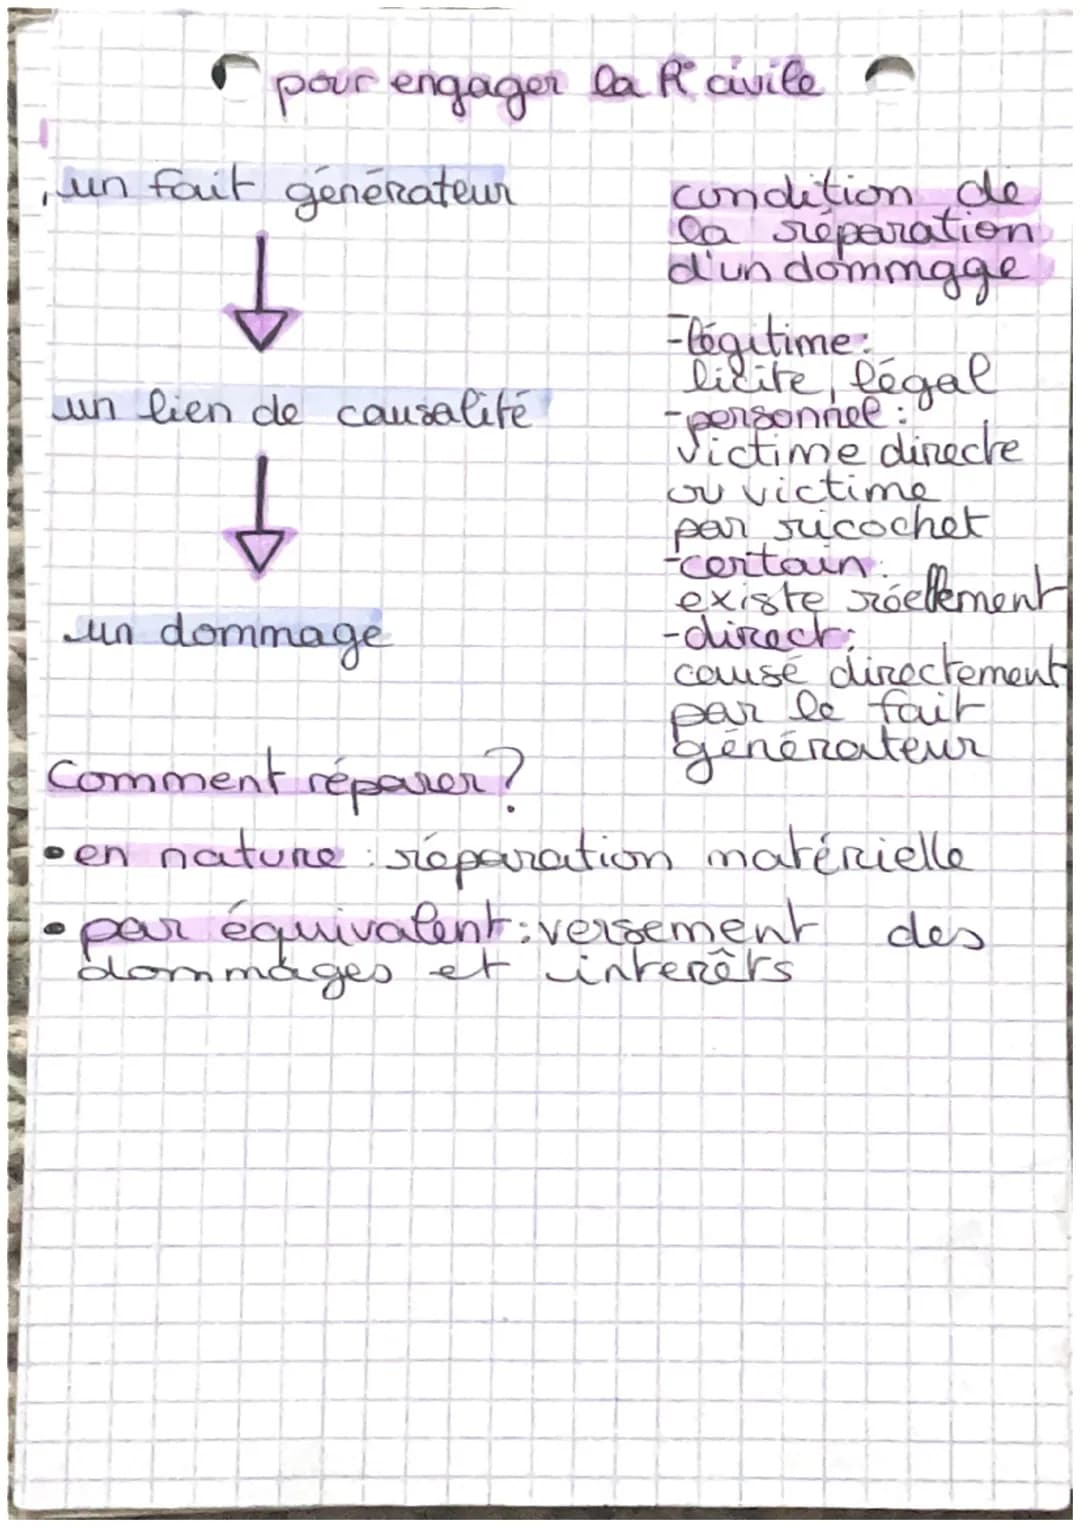 pour engager la R° civile
un fait générateur
un lien de causalité
un dommage
condition de
la réparation
d'un dommage
-légitime:
licite, légal
-personnel:
victime directe
ou victime
par ricochet
-certain:
existe réellement
-direct:
causé directement
par le fait
générateur
Comment réparer?
• en nature : réparation matérielle
• par équivalent : versement des
dommages et interêts